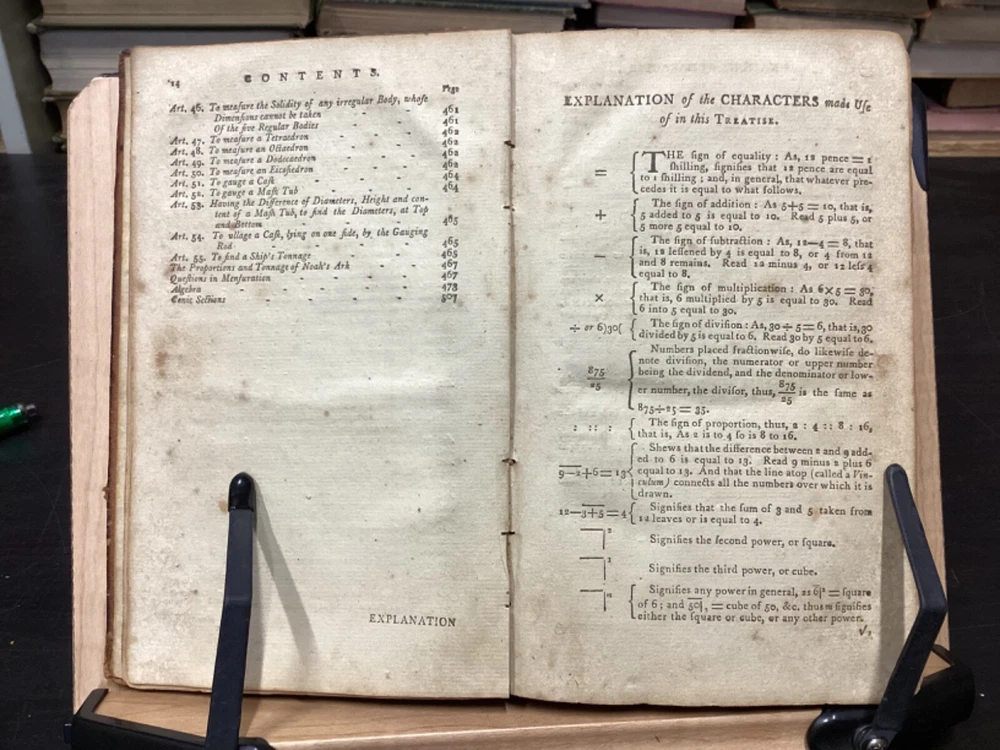 14 CONTENTS.
Page
Art. 46. To meaſure the Solidity of any irregular Body, whoſe
Dimenſions cannot be taken - - 461
Of the five Regular Bodies - - - 461
Art. 47. To meaſure a Tetraedron - - - 462
Art. 48. To meaſure an Octaedron - - - 462
Art. 49. To meaſure a Dodecaedron - - - 462
Art. 50. To meaſure an Eicoſiedron - - - 462
Art. 51. To gauge a Caſk - - - 464
Art. 52. To gauge a Maſh Tub - - - 464
Art. 53. Having the Difference of Diameters, Height and con-
tent of a Maſh Tub, to find the Diameters, at Top
and Bottom - - - 465
Art. 54. To ullage a Caſk, lying on one ſide, by the Gauging
Rod - - - 465
Art. 55. To find a Ship's Tonnage - - - 465
The Proportions and Tonnage of Noah's Ark - - - 467
Queſtions in Menſuration - - - 467
Algebra - - - 478
Conic Sections - - - 507
EXPLANATION
EXPLANATION of the CHARACTERS made Uſe
of in this TREATISE.
= THE ſign of equality: As, 12 pence = 1
ſhilling, ſignifies that 12 pence are equal
to 1 ſhilling; and, in general, that whatever pre-
cedes it is equal to what follows.
+ The ſign of addition: As 5+5=10, that is,
5 added to 5 is equal to 10. Read 5 plus 5, or
5 more 5 equal to 10.
— The ſign of ſubtraction: As, 12—4=8, that
is, 12 leſſened by 4 is equal to 8, or 4 from 12
and 8 remains. Read 12 minus 4, or 12 leſs 4
equal to 8.
× The ſign of multiplication: As 6×5=30,
that is, 6 multiplied by 5 is equal to 30. Read
6 into 5 equal to 30.
÷ or 6)30( The ſign of diviſion: As, 30÷5=6, that is, 30
divided by 5 is equal to 6. Read 30 by 5 equal to 6.
Numbers placed fractionwiſe, do likewiſe de-
note diviſion, the numerator or upper number
875/25 being the dividend, and the denominator or low-
er number, the diviſor, thus, 875/25 is the ſame as
875÷25=35.
: :: : The ſign of proportion, thus, 2 : 4 :: 8 : 16,
that is, As 2 is to 4 ſo is 8 to 16.
Shews that the difference between 2 and 9 add-
ed to 6 is equal to 13. Read 9 minus 2 plus 6
9—2+6=13 equal to 13. And that the line atop (called a Vin-
culum) connects all the numbers over which it is
drawn.
12—3+5=4 Signifies that the ſum of 3 and 5 taken from
12 leaves or is equal to 4.
2 Signifies the ſecond power, or ſquare.
3 Signifies the third power, or cube.
m Signifies any power in general, as 6|² = ſquare
of 6; and 50|³, = cube of 50, &c. thus m ſignifies
either the ſquare or cube, or any other power.
√,